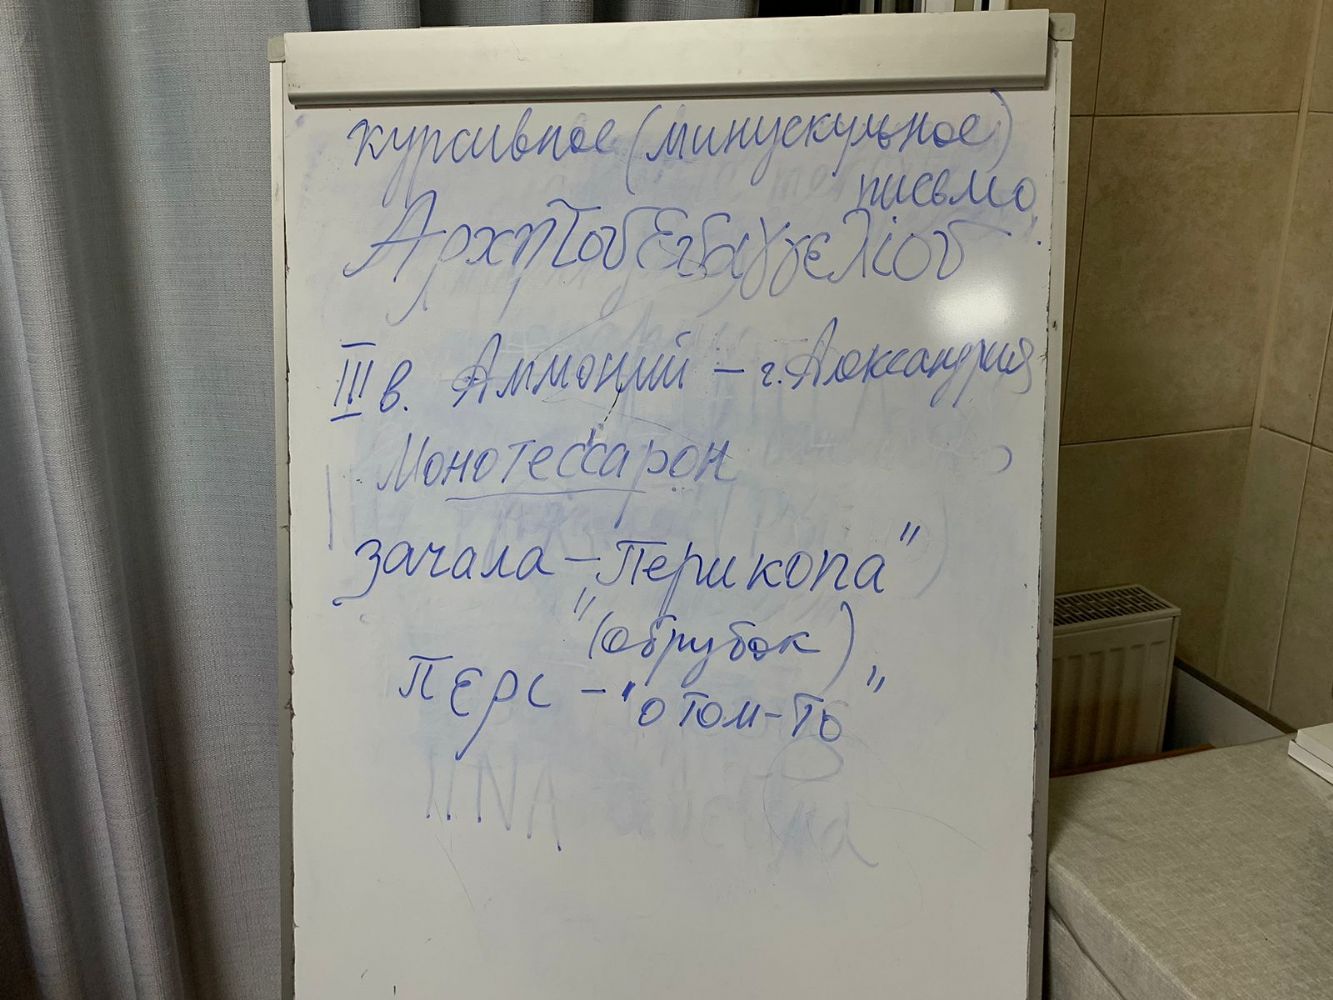 курсивное (минускульное)
письмо
III в. Аммоний – г. Александрия
Монотессарон
зачала – "Перикопа"
(обрубок)
περι – "о том-то"